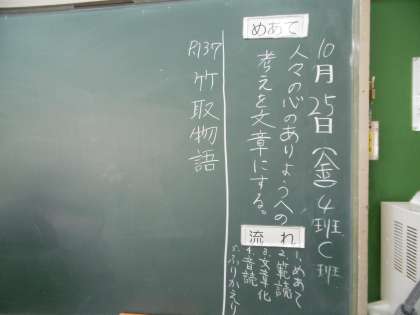 10月25日(金)4班C班
めあて
人々の心のありようへの
考えを文章にする。
流れ
1.めあて
2.範読
3.文章化
4.音読
5.ふりかえり
P.137
竹取物語